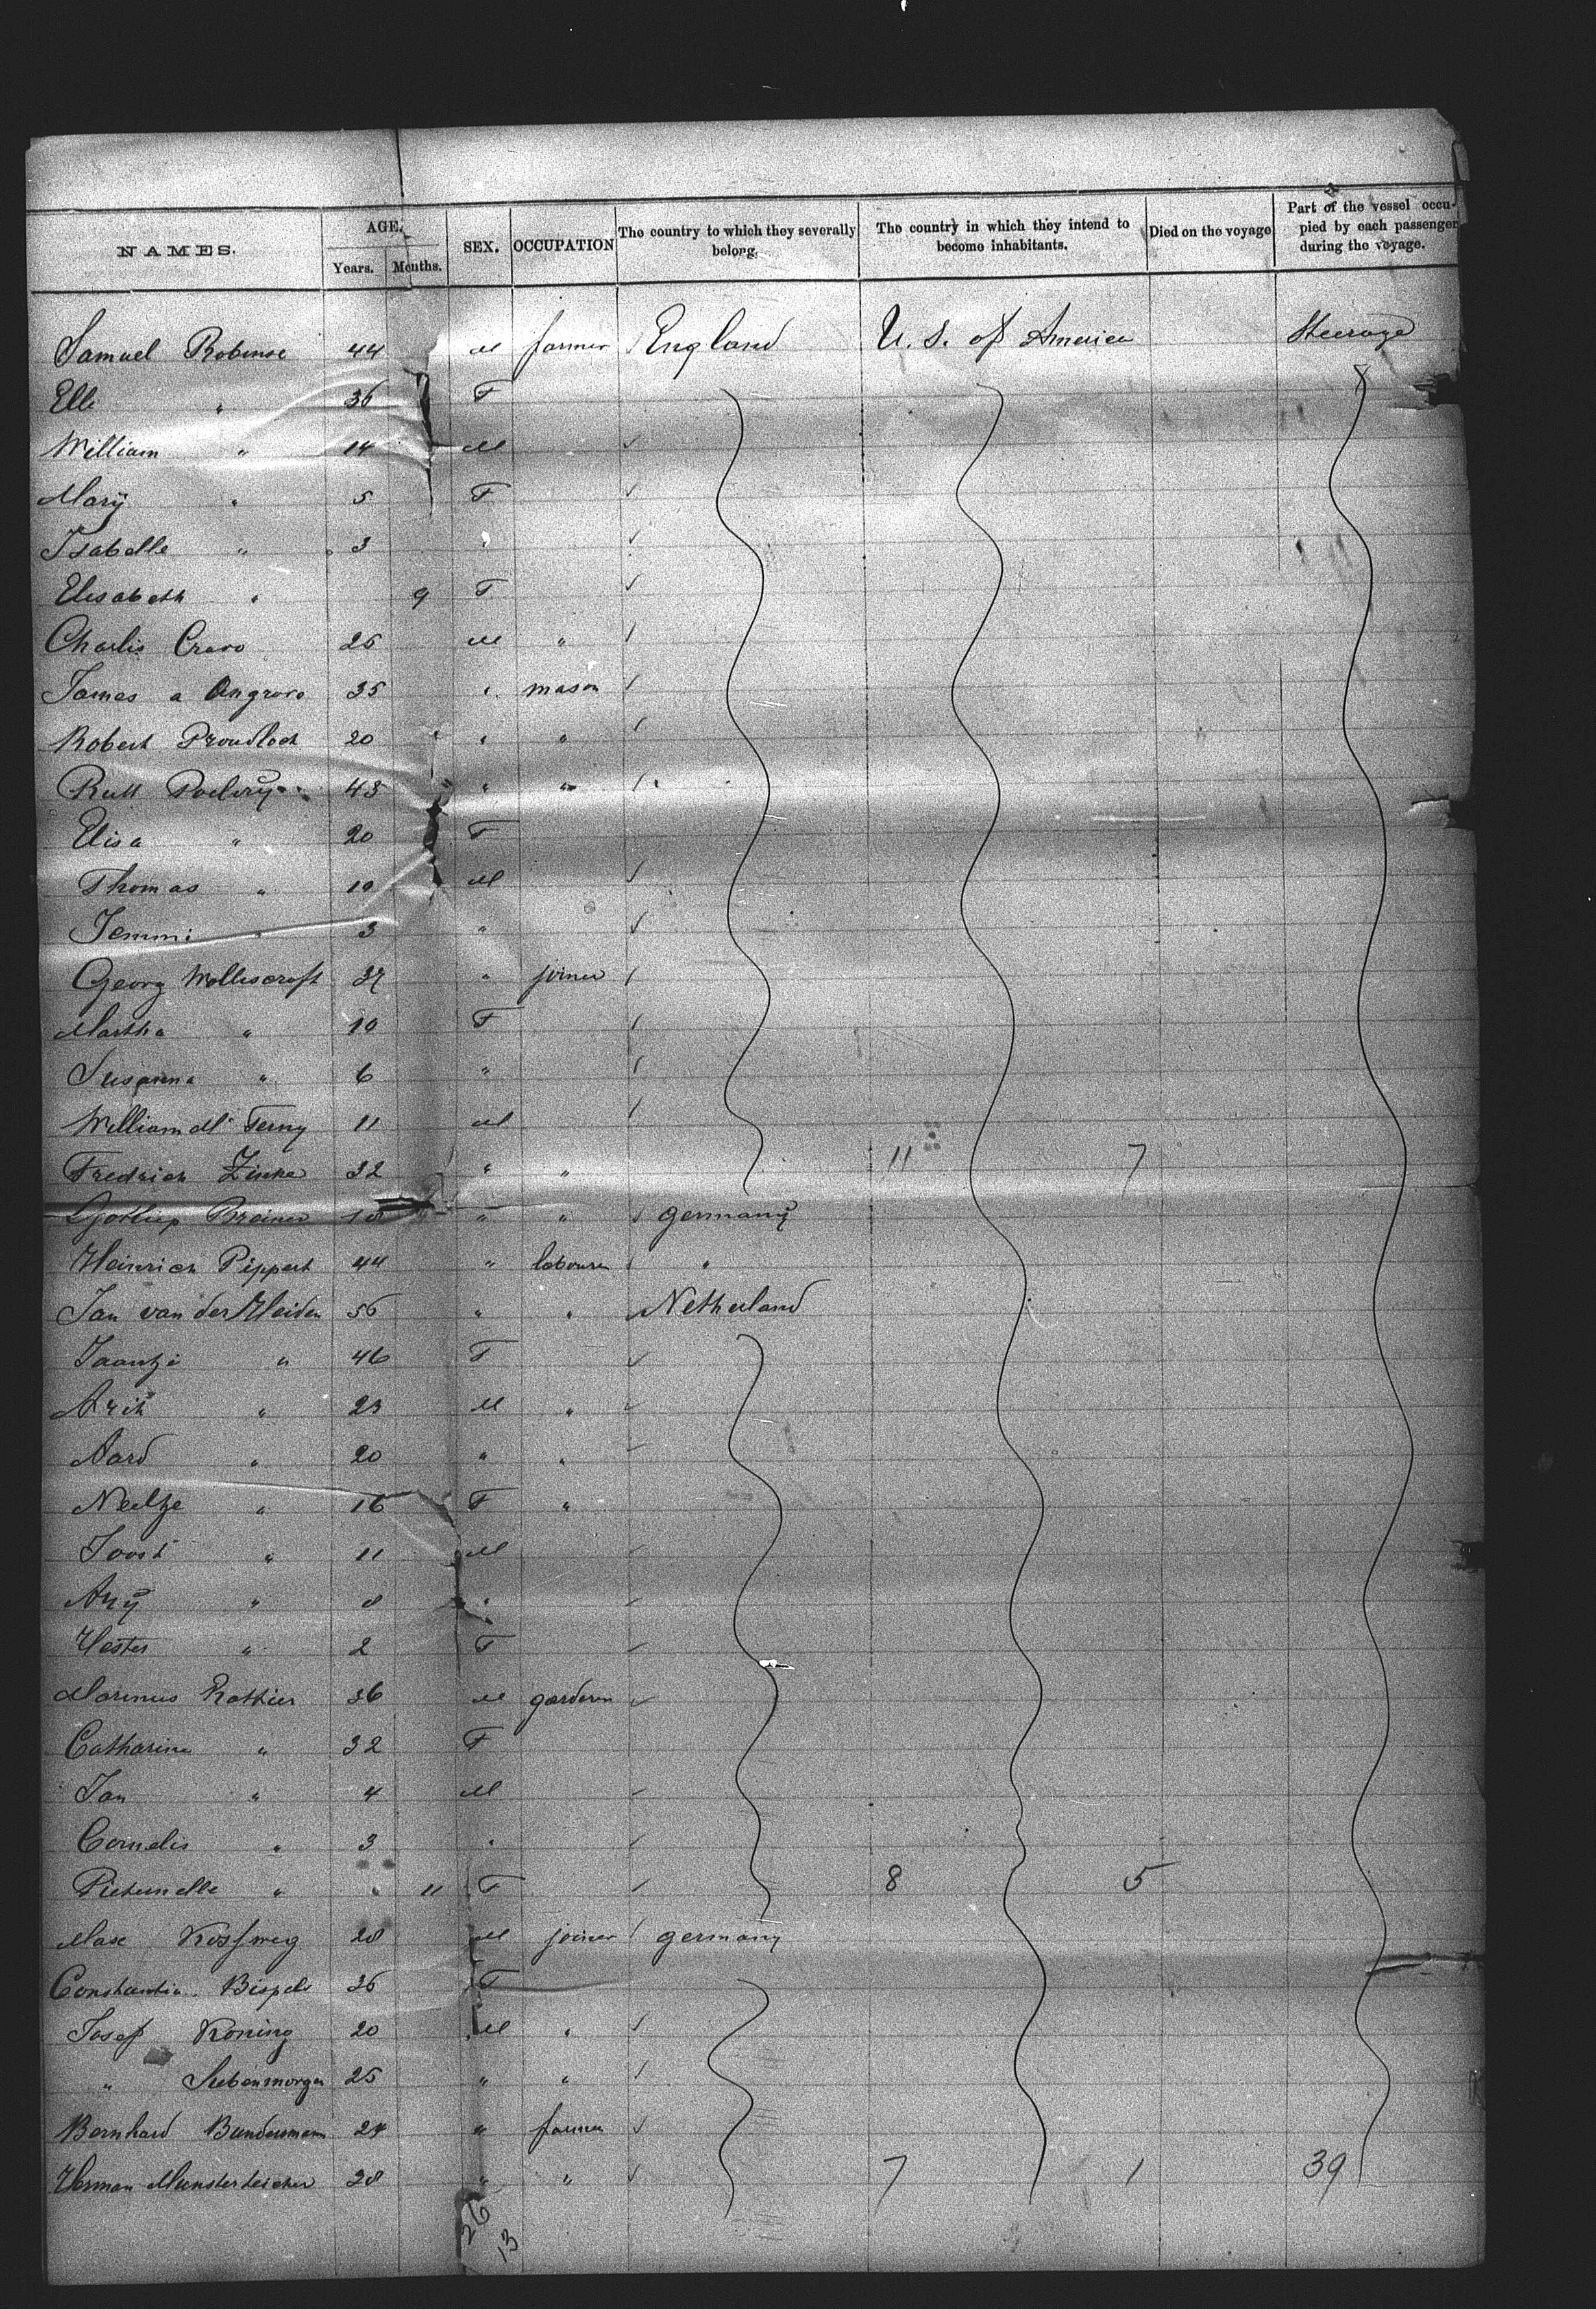 NAMES. AGE. SEX. OCCUPATION The country to which they severally belong. The country in which they intend to become inhabitants. Died on the voyage Part of the vessel occupied by each passenger during the voyage.
Years. Months.
Samuel Robinse 44 M farmer England U. S. of America Steerage
Elli " 36 F
William " 14 M
Mary " 5 F
Isabelle " 3 "
Elisabeth " 9 F
Charlis Cravo 26 M "
James a Angrove 35 " mason
Robert Proudlock 20 " "
Rutt 43 " "
Elisa " 20 F
Thomas " 10 M
Jemmi " 3 "
Georg Wolliscroft 37 " joiner
Martha " 10 F
Susanna " 6 "
William M Terny 11 M
Fredrich Zinke 32 " " 11 7
Gottliep Breiner 18 " " germany
Heinrich Pippert 44 " labourer "
Jan van der Heiden 56 " " Netherland
Jaantje " 46 F
Arik " 23 M "
Aard " 20 " "
Neeltje " 16 F "
Joost " 11 M
Ary " 8 "
Hester " 2 F
Marinus Rottier 36 M garderen
Catharina " 32 F
Jan " 4 M
Cornelis " 3 "
Pieternelle " " 11 F 8 5
Max Kossweg 28 M joiner germany
Constantia Bispels 36 F
Josef Koning 20 M "
" Siebenmorgen 25 " "
Bernhard Bundesmann 24 " farmer
Herman Munsterteicher 28 " " 7 1 39
26
13